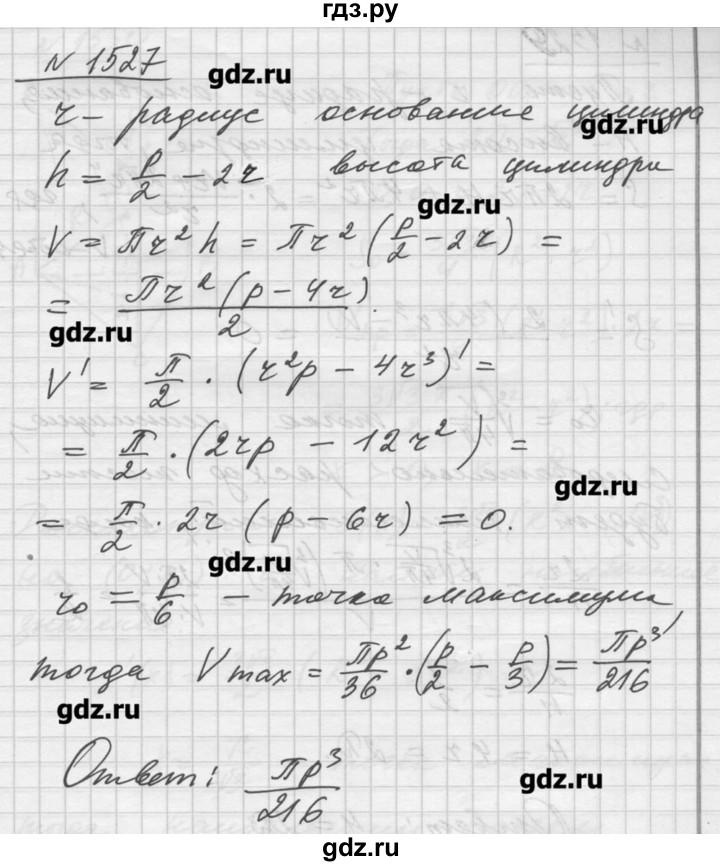 гдз.ру
N 1527
gdz.ru
r – радиус основание цилиндра
gdz.ru
h = p/2 − 2r высота цилиндра
gdz.ru
V = Пr² h = Пr² (p/2 − 2r) =
= Пr² (p − 4r) / 2
gdz.ru
V' = П/2 · (r²p − 4r³)' =
= П/2 · (2rp − 12r²) =
gdz.ru
= П/2 · 2r (p − 6r) = 0.
gdz.ru
r₀ = p/6 – точка максимума,
тогда V max = Пp²/36 · (p/2 − p/3) = Пp³/216
gdz.ru
Ответ: Пp³/216
gdz.ru
gdz.ru